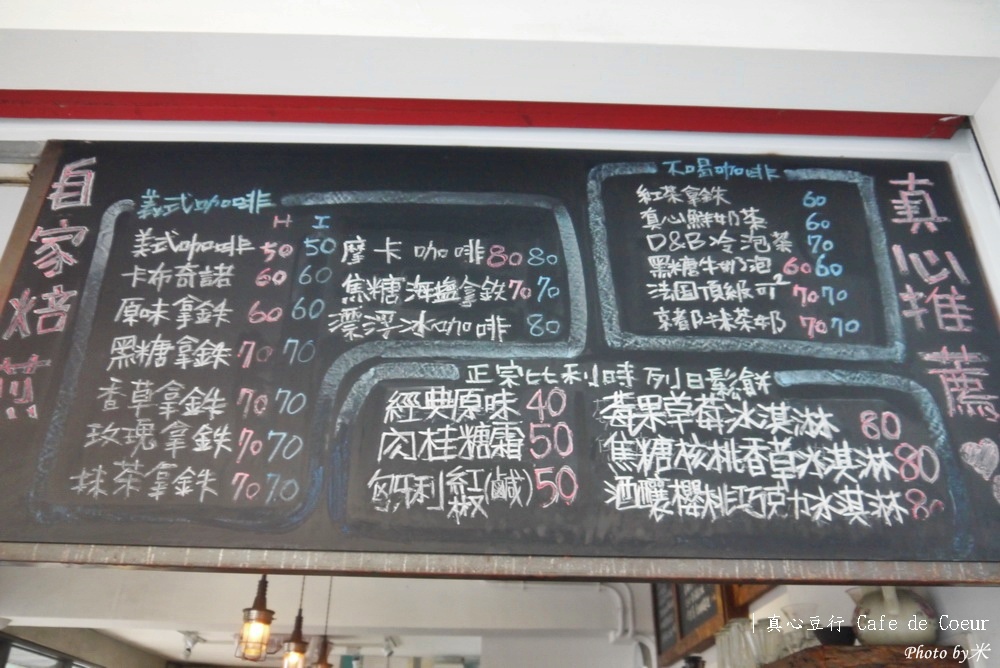 自家焙煎
義式咖啡
H I
義式咖啡 50 50
卡布奇諾 60 60
原味拿鉄 60 60
黑糖拿鉄 70 70
香草拿鉄 70 70
玫瑰拿鉄 70 70
抹茶拿鉄 70 70
摩卡咖啡 80 80
焦糖海鹽拿鉄 70 70
漂浮冰咖啡 80
不喝咖啡
紅茶拿鉄 60
真心鮮奶茶 60
D&B冷泡茶 70
黑糖牛奶泡 60 60
法国頂級可² 70 70
京都抹茶奶 70 70
正宗比利時列日鬆餅
經典原味 40
肉桂糖霜 50
匈牙利紅椒(鹹) 50
莓果草莓冰淇淋 80
焦糖核桃香草冰淇淋 80
酒釀櫻桃巧克力冰淇淋 80
真心推薦
｜真心豆行 Cafe de Coeur
Photo by米